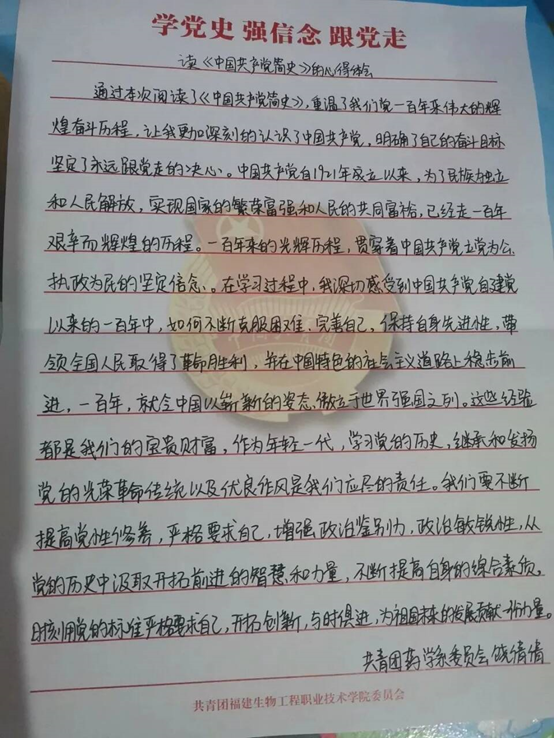 学党史 强信念 跟党走
读《中国共产党简史》的心得体会
通过本次阅读了《中国共产党简史》，重温了我们党一百年来伟大的辉
煌奋斗历程，让我更加深刻的认识了中国共产党，明确了自己的奋斗目标
坚定了永远跟党走的决心。中国共产党自1921年成立以来，为了民族独立
和人民解放，实现国家的繁荣富强和人民的共同富裕，已经走一百年
艰辛而辉煌的历程。一百年来的光辉历程，贯穿着中国共产党立党为公，
执政为民的坚定信念。在学习过程中，我深切感受到中国共产党自建党
以来的一百年中，如何不断克服困难、完善自己，保持自身先进性，带
领全国人民取得了革命胜利，并在中国特色的社会主义道路上稳步前
进，一百年，就令中国以崭新的姿态，傲立于世界强国之列。这些经验
都是我们的宝贵财富，作为年轻一代，学习党的历史，继承和发扬
党的光荣革命传统以及优良作风是我们应尽的责任。我们要不断
提高党性修养，严格要求自己，增强政治鉴别力，政治敏锐性，从
党的历史中汲取开拓前进的智慧和力量，不断提高自身的综合素质。
时刻用党的标准严格要求自己，开拓创新，与时俱进，为祖国未来的发展贡献一份力量。
共青团药学系委员会 饶倩倩
共青团福建生物工程职业技术学院委员会